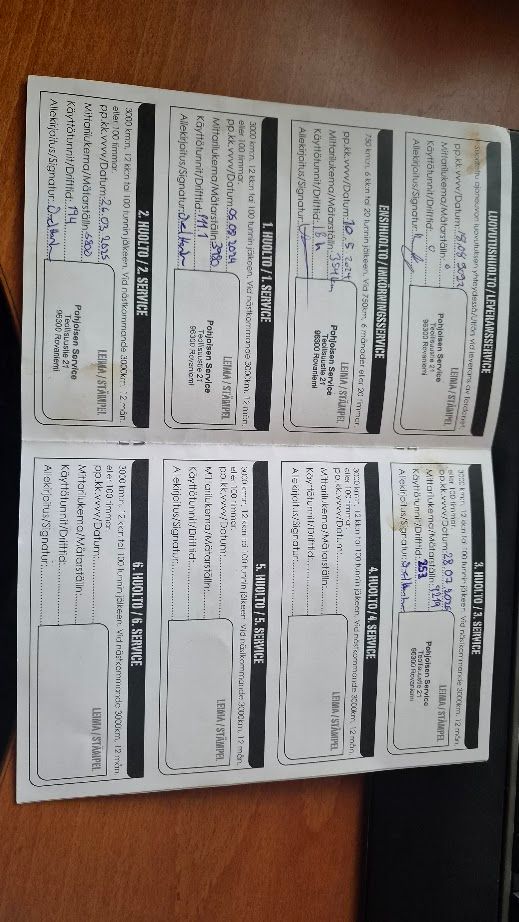 LUOVUTUSHUOLTO / LEVERANSSERVICE
Suoritettu ajoneuvon luovutuksen yhteydessä/Utförd vid leverans av fordonet
pp.kk.vvvv/Datum:
Mittarilukema/Mätarställn: 0
Käyttötunnit/Drifttid: 0
Allekirjoitus/Signatur:
LEIMA / STÄMPEL
Pohjoisen Service
Teollisuustie 21
96300 Rovaniemi
ENSIHUOLTO / INKÖRNINGSSERVICE
750 km:n, 6 kk:n tai 20 tunnin jälkeen. Vid 750km, 6 månader eller 20 timmar.
pp.kk.vvvv/Datum: 10.5.2024
Mittarilukema/Mätarställn:
Käyttötunnit/Drifttid: 18 h
Allekirjoitus/Signatur:
LEIMA / STÄMPEL
Pohjoisen Service
Teollisuustie 21
96300 Rovaniemi
1. HUOLTO / 1. SERVICE
3000 km:n, 12 kk:n tai 100 tunnin jälkeen. Vid nästkommande 3000km, 12 mån.
eller 100 timmar.
pp.kk.vvvv/Datum: 05.09.2024
Mittarilukema/Mätarställn: 3980
Käyttötunnit/Drifttid: 111.1
Allekirjoitus/Signatur:
LEIMA / STÄMPEL
Pohjoisen Service
Teollisuustie 21
96300 Rovaniemi
2. HUOLTO / 2. SERVICE
3000 km:n, 12 kk:n tai 100 tunnin jälkeen. Vid nästkommande 3000km, 12 mån.
eller 100 timmar.
pp.kk.vvvv/Datum: 26.03.2025
Mittarilukema/Mätarställn: 6800
Käyttötunnit/Drifttid: 194
Allekirjoitus/Signatur:
LEIMA / STÄMPEL
Pohjoisen Service
Teollisuustie 21
96300 Rovaniemi
3. HUOLTO / 3. SERVICE
3000 km:n, 12 kk:n tai 100 tunnin jälkeen. Vid nästkommande 3000km, 12 mån.
eller 100 timmar.
pp.kk.vvvv/Datum: 28.07.2025
Mittarilukema/Mätarställn: 9219
Käyttötunnit/Drifttid: 253
Allekirjoitus/Signatur:
LEIMA / STÄMPEL
Pohjoisen Service
Teollisuustie 21
96300 Rovaniemi
4. HUOLTO / 4. SERVICE
3000 km:n, 12 kk:n tai 100 tunnin jälkeen. Vid nästkommande 3000km, 12 mån.
eller 100 timmar.
pp.kk.vvvv/Datum:
Mittarilukema/Mätarställn:
Käyttötunnit/Drifttid:
Allekirjoitus/Signatur:
LEIMA / STÄMPEL
5. HUOLTO / 5. SERVICE
3000 km:n, 12 kk:n tai 100 tunnin jälkeen. Vid nästkommande 3000km, 12 mån.
eller 100 timmar.
pp.kk.vvvv/Datum:
Mittarilukema/Mätarställn:
Käyttötunnit/Drifttid:
Allekirjoitus/Signatur:
LEIMA / STÄMPEL
6. HUOLTO / 6. SERVICE
3000 km:n, 12 kk:n tai 100 tunnin jälkeen. Vid nästkommande 3000km, 12 mån.
eller 100 timmar.
pp.kk.vvvv/Datum:
Mittarilukema/Mätarställn:
Käyttötunnit/Drifttid:
Allekirjoitus/Signatur:
LEIMA / STÄMPEL